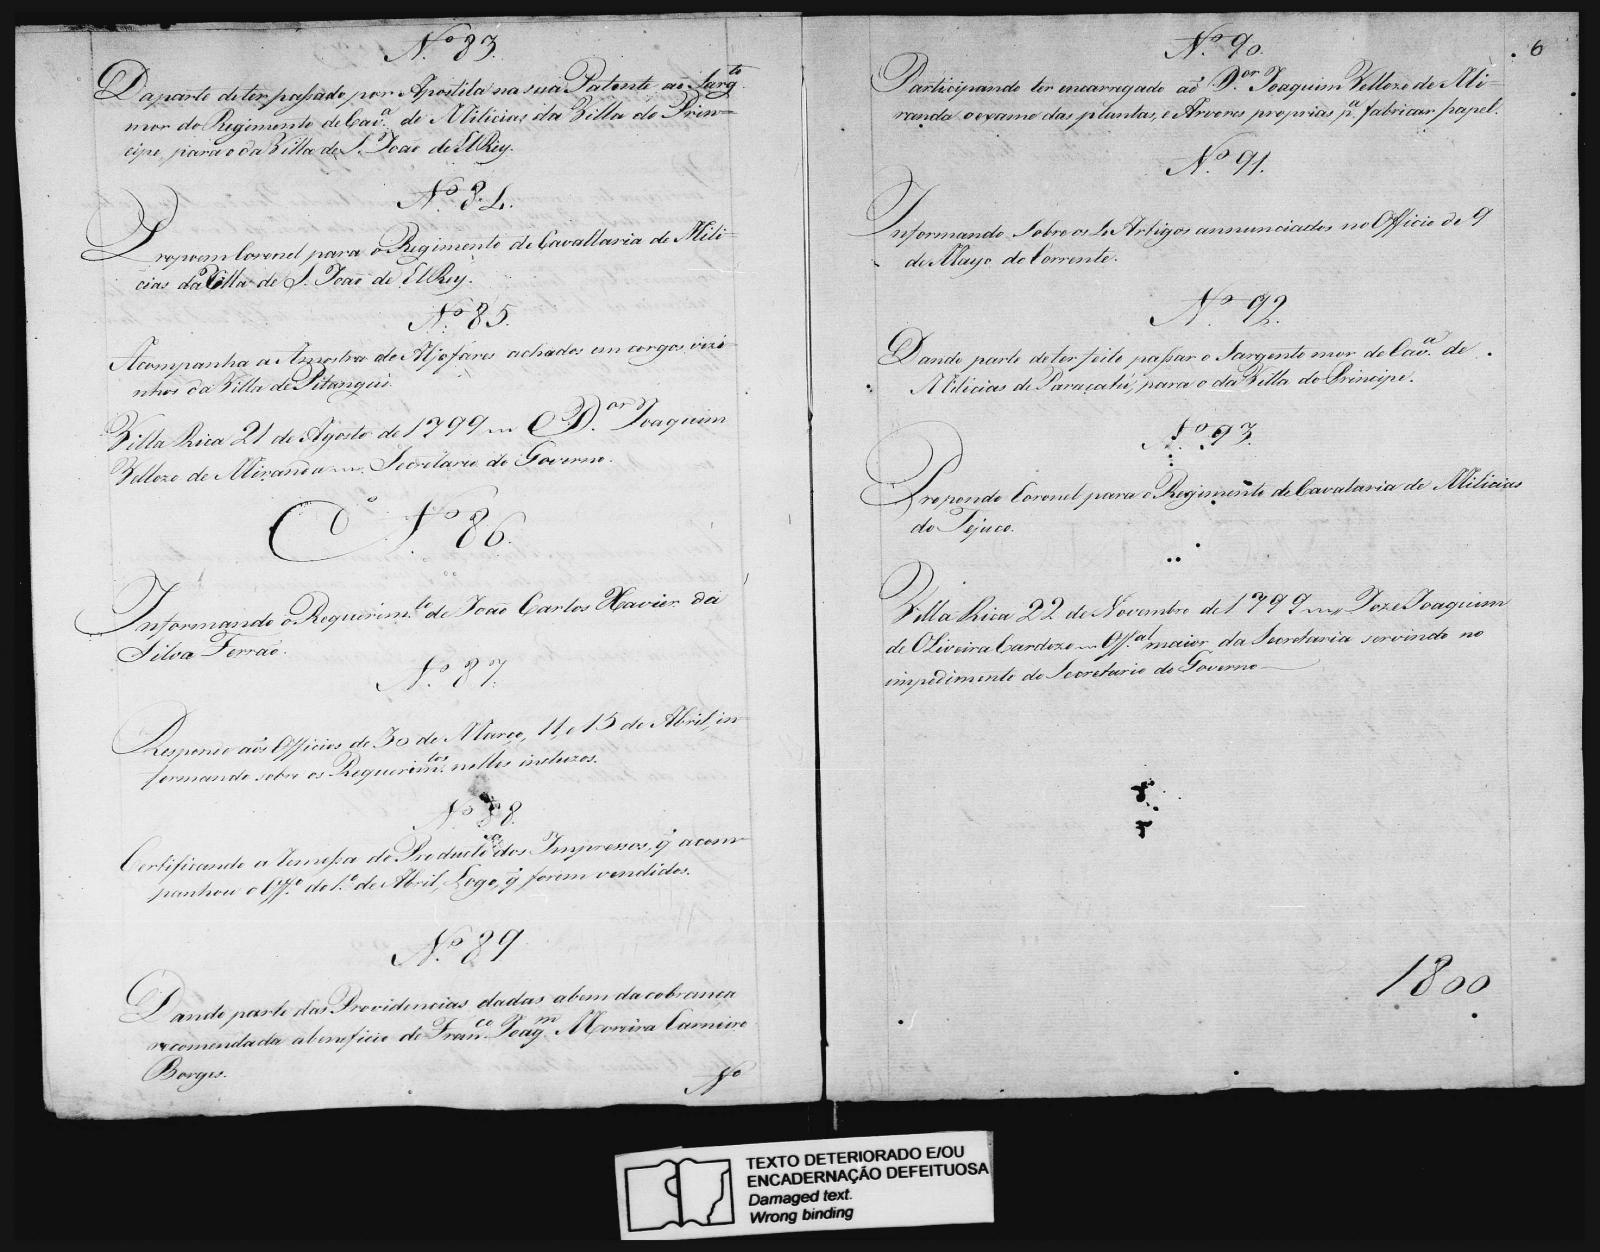 Nº 83.
Da parte de ter passado por Apostila na sua Patente ao Sargto
mor do Regimento de Cavª de Milicias da Villa do Prin=
cipe, para o da Villa de S. Joaõ de El Rey.
Nº 84.
Propoem Coronel para o Regimento de Cavallaria de Mili=
cias da Villa de S. Joaõ de El Rey.
Nº 85.
Acompanha a Amostra de Aljofares achados em corgos vizi
nhos da Villa de Pitangui.
Villa Rica 21 de Agosto de 1799 // O Dor Joaquim
Vellozo de Miranda // Secretario do Governo.
Nº 86.
Informando o Requerimto de Joaõ Carlos Xavier da
Silva Ferraõ.
Nº 87.
Responde aos Officios de 30 de Março, 11, e 15 de Abril, in=
formando sobre os Requerimtos nelles incluzos.
Nº 88.
Certificando a remessa do Producto dos Impressos, q̃ acom=
panhou o Offº do 1º de Abril, Logo, q̃ forem vendidos.
Nº 89
Dando parte das Providencias dadas a bem da cobrança
recomendada a beneficio de Franco Joaqm Moreira Carneiro
Borges.
Nº
6
Nº 90.
Participando ter encarregado ao Dor Joaquim Vellozo de Mi=
randa o exame das plantas, e Arvores proprias pª fabricar papel.
Nº 91.
Informando sobre os 4 Artigos annunciados no Officio de 9
de Mayo do Corrente.
Nº 92.
Dando parte de ter feito passar o Sargento mor de Cavª de
Milicias de Paracatú, para o da Villa do Principe.
Nº 93.
Propondo Coronel para o Regimento de Cavalaria de Milicias
do Tejuco.
Villa Rica 22 de Novembro de 1799 // Joze Joaquim
de Oliveira Cardozo // Offal maior da Secretaria servindo no
impedimento do Secretario do Governo
1800
TEXTO DETERIORADO E/OU
ENCADERNAÇÃO DEFEITUOSA
Damaged text.
Wrong binding